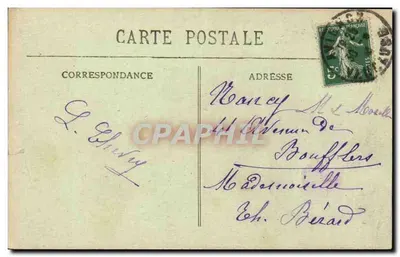 CARTE POSTALE
CORRESPONDANCE
ADRESSE
Nancy
M & Moselle
Avenue de
Boufflers
Mademoiselle
Th. Bérard
L. Thiry
CPAPHIL.com